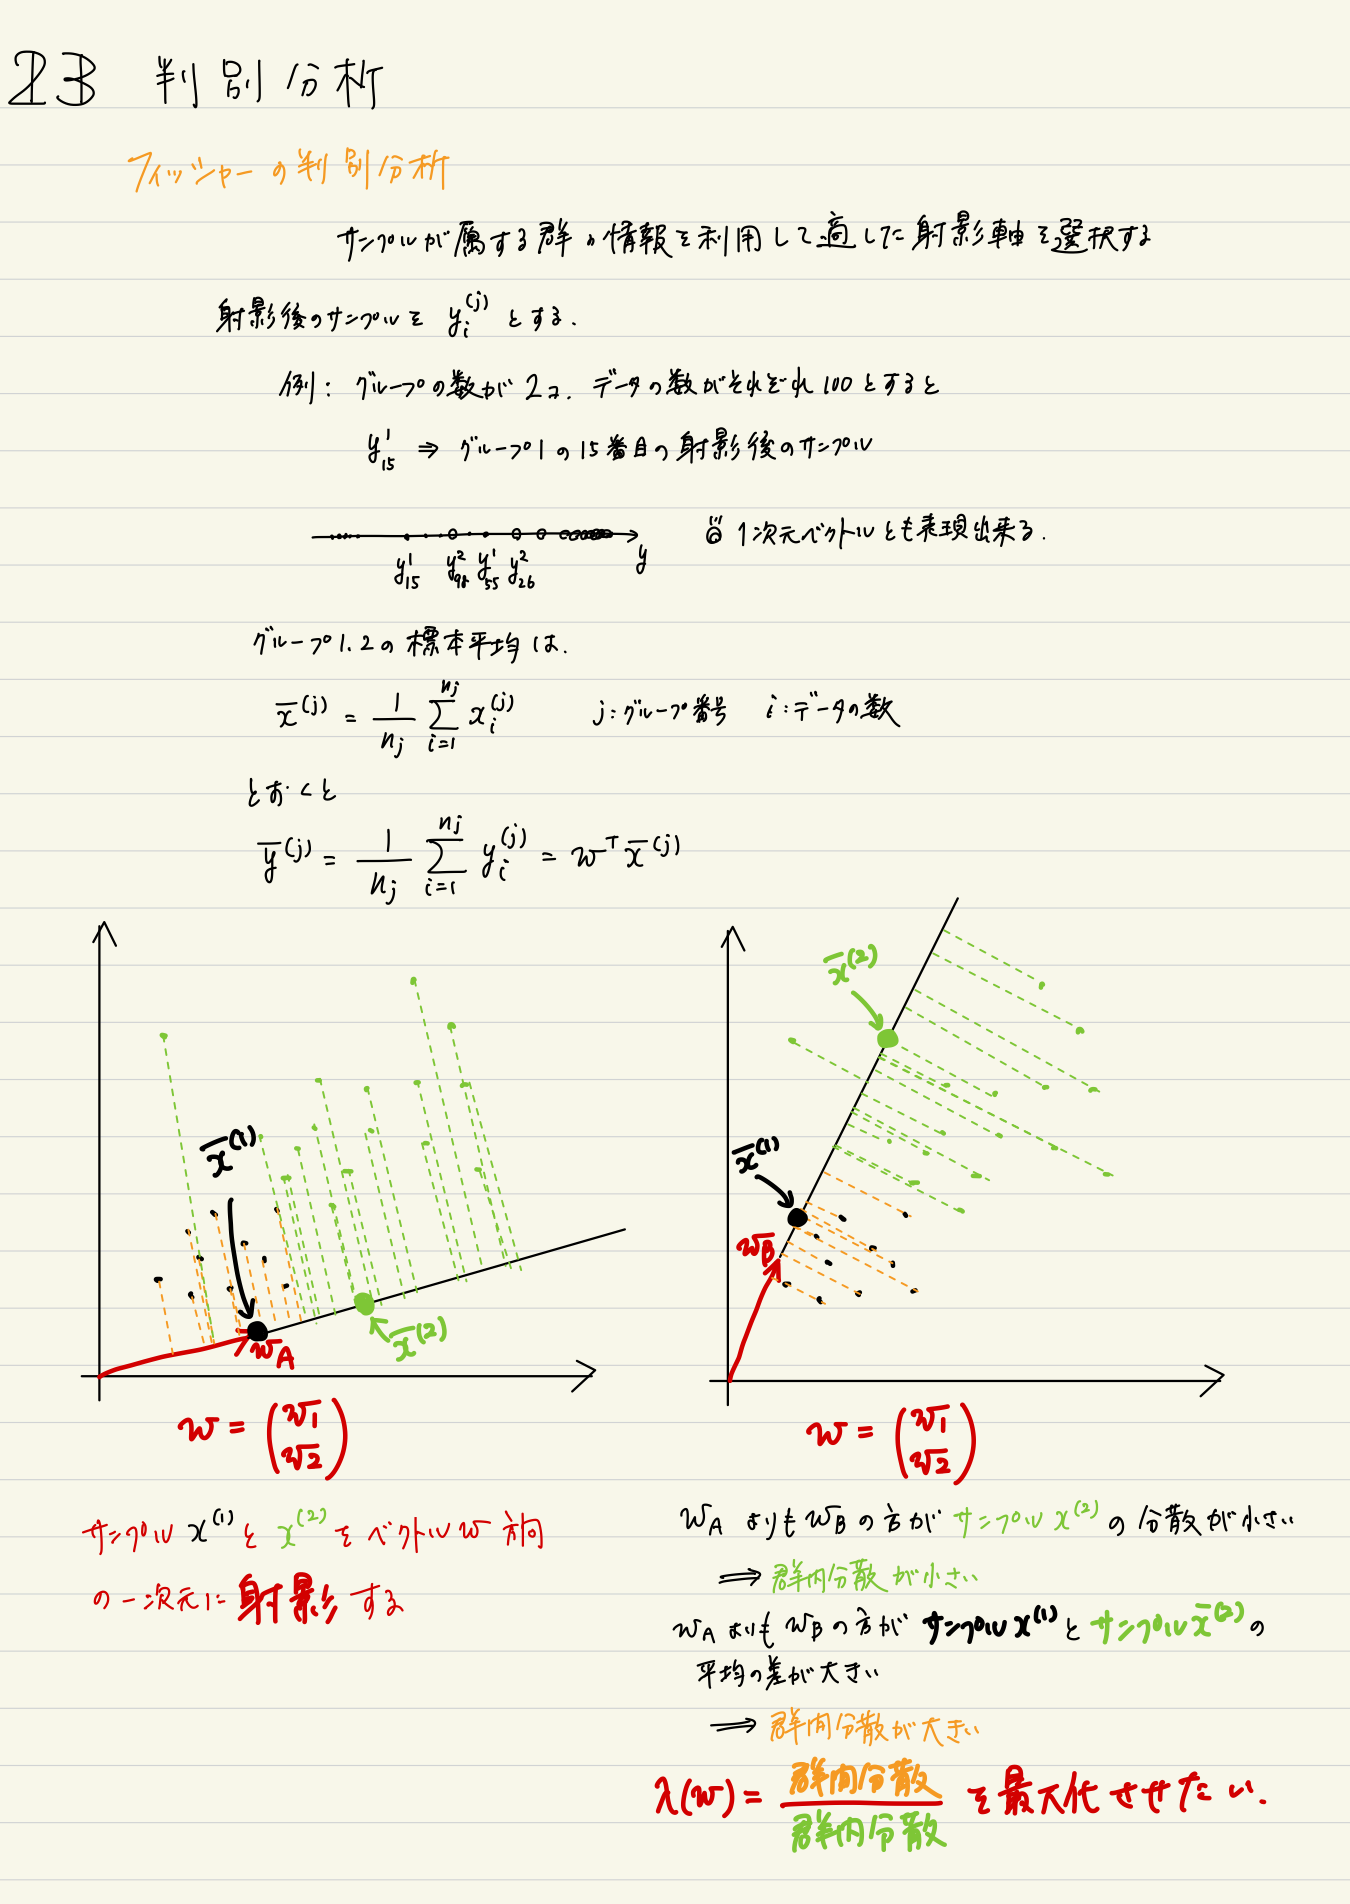 23 判別分析
フィッシャーの判別分析
サンプルが属する群の情報を利用して適した射影軸を選択する
射影後のサンプルを y_i^(j) とする.
例: グループの数が2コ. データの数がそれぞれ100とすると
y_15^1 ⇒ グループ1の15番目の射影後のサンプル
1次元ベクトルとも表現出来る.
y_15^1 y_98^2 y_55^1 y_26^2 y
グループ1.2の標本平均は.
x̄^(j) = 1/n_j Σ_{i=1}^{n_j} x_i^(j) j:グループ番号 i:データの数
とおくと
ȳ^(j) = 1/n_j Σ_{i=1}^{n_j} y_i^(j) = w^T x̄^(j)
x̄^(1)
w_A
x̄^(2)
w = (w1 w2)
x̄^(2)
x̄^(1)
w_B
w = (w1 w2)
サンプル x^(1) と x^(2) をベクトル w 方向
の一次元に射影する
w_A よりも w_B の方が サンプル x^(2) の分散が小さい
⇒ 群内分散が小さい
w_A よりも w_B の方が サンプル x^(1) と サンプル x̄^(2) の
平均の差が大きい
⇒ 群間分散が大きい
λ(w) = 群間分散 / 群内分散 を最大化させたい.